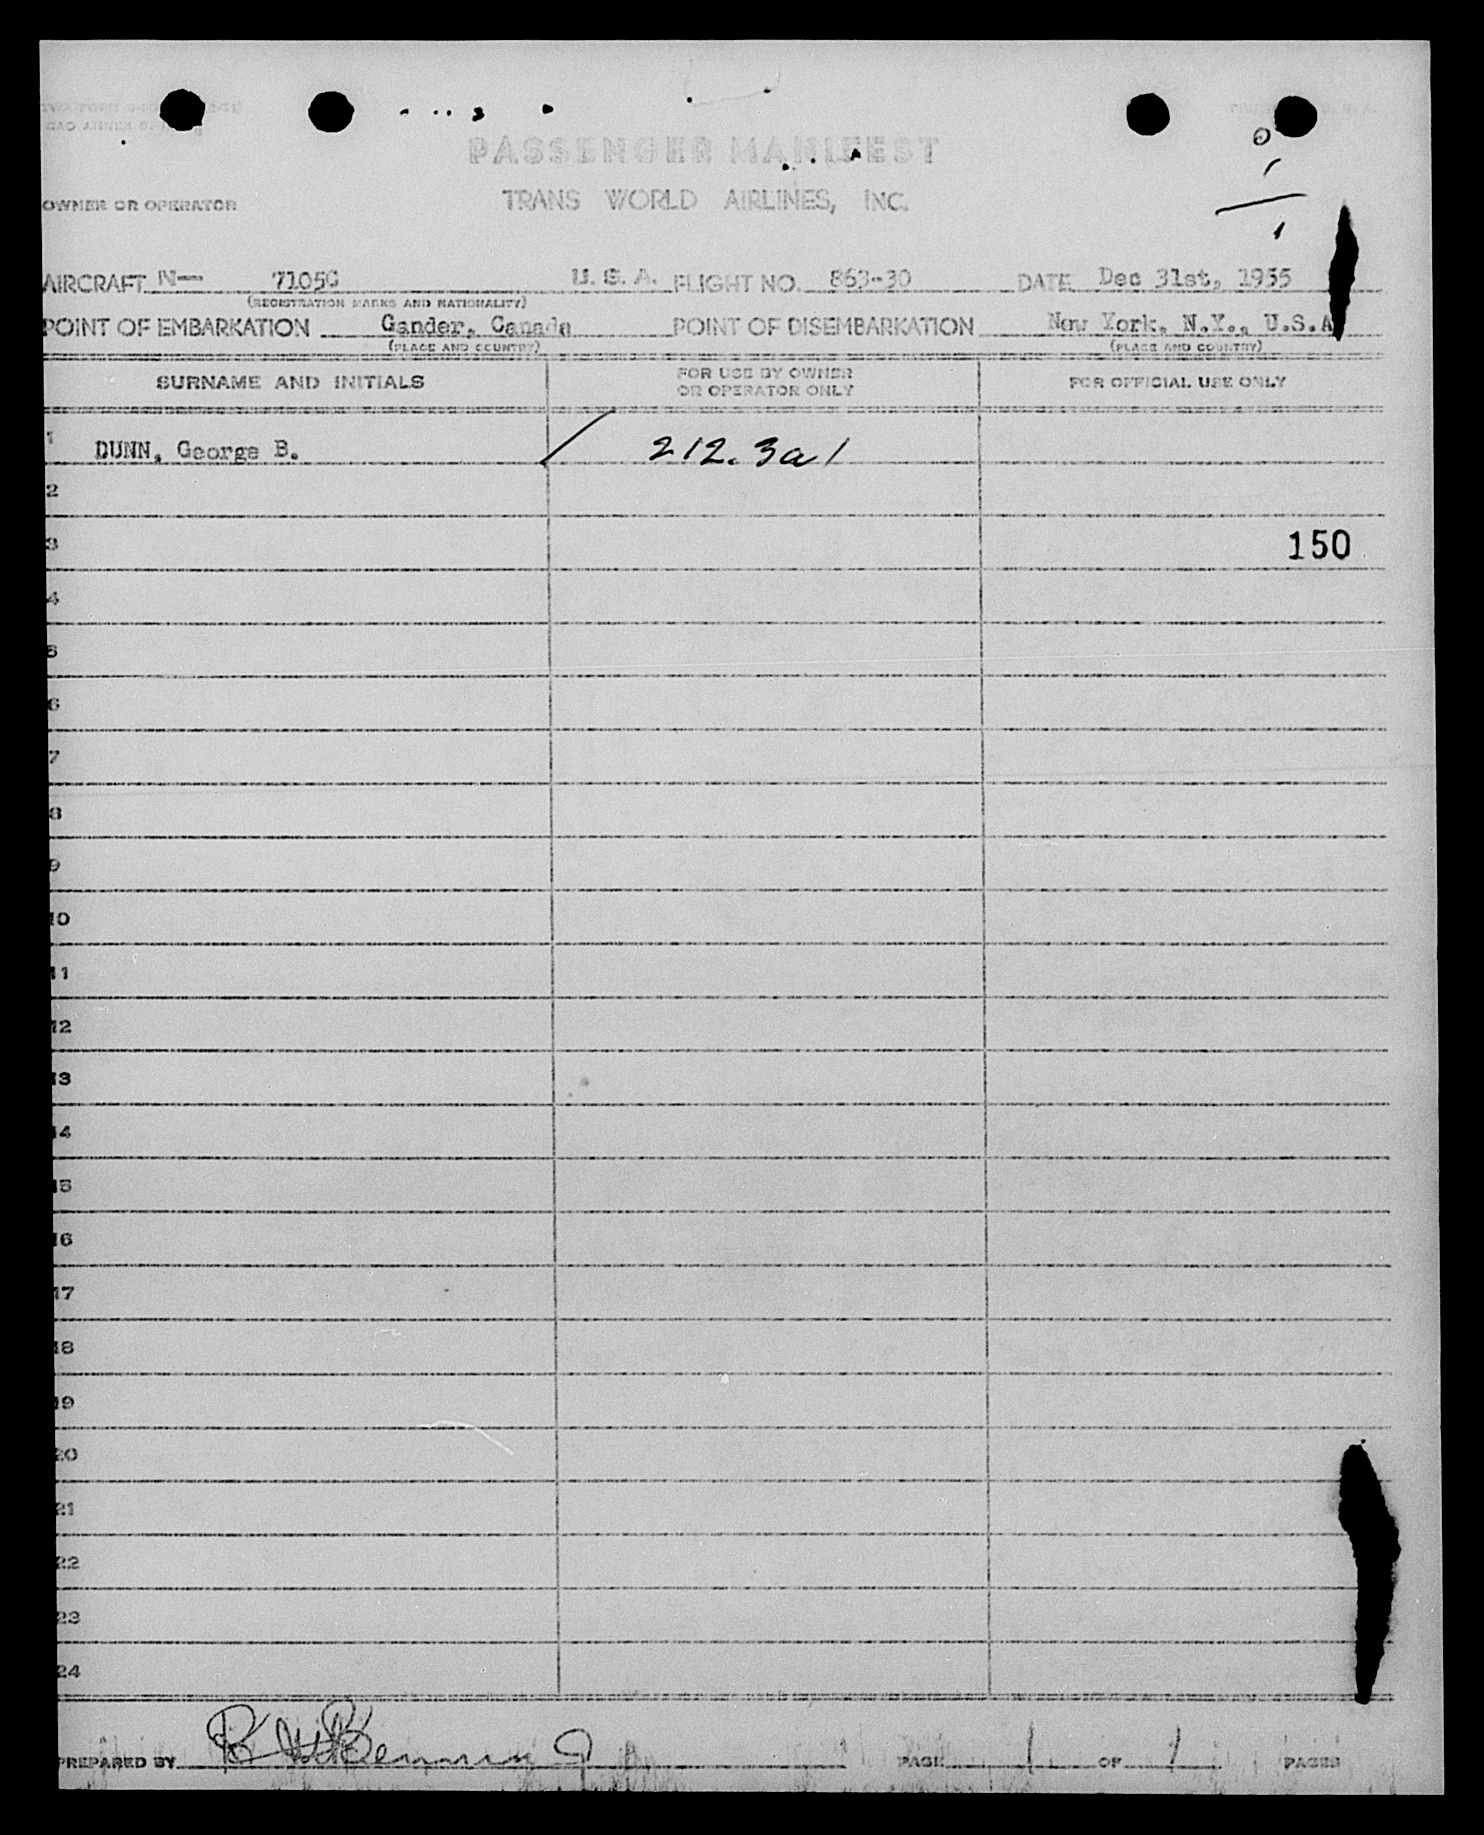 PASSENGER MANIFEST
OWNER OR OPERATOR TRANS WORLD AIRLINES, INC.
0
1
1
AIRCRAFT N— 7105C U. S. A. FLIGHT NO. 863-30 DATE Dec 31st, 1955
(REGISTRATION MARKS AND NATIONALITY)
POINT OF EMBARKATION Gander, Canada POINT OF DISEMBARKATION New York, N.Y., U.S.A
(PLACE AND COUNTRY) (PLACE AND COUNTRY)
SURNAME AND INITIALS FOR USE BY OWNER OR OPERATOR ONLY FOR OFFICIAL USE ONLY
1 DUNN, George B. / 212.3a1
2
3 150
4
5
6
7
8
9
10
11
12
13
14
15
16
17
18
19
20
21
22
23
24
PREPARED BY PAGE 1 OF 1 PAGES